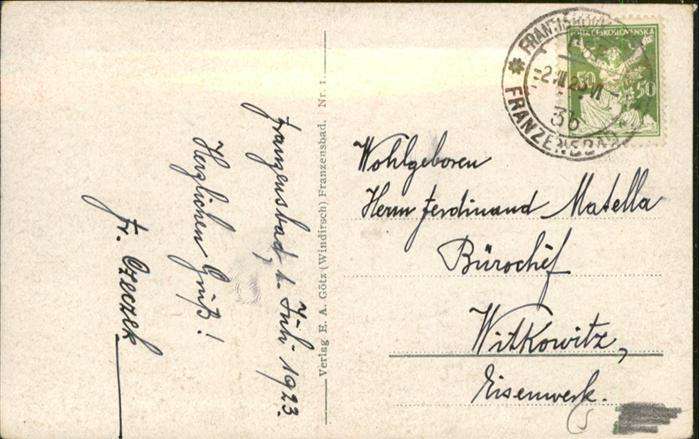 Franzensbad, 1. Juli 1923.
Herzlichen Gruß!
Fr. Czeczek
Verlag E. A. Götz (Windirsch) Franzensbad. Nr. 1.
FRANZENSBAD
3b
POŠTA ČESKOSLOVENSKÁ
50 50
Wohlgeboren
Herrn Ferdinand Matella
Bürochef
Witkowitz,
Eisenwerk.